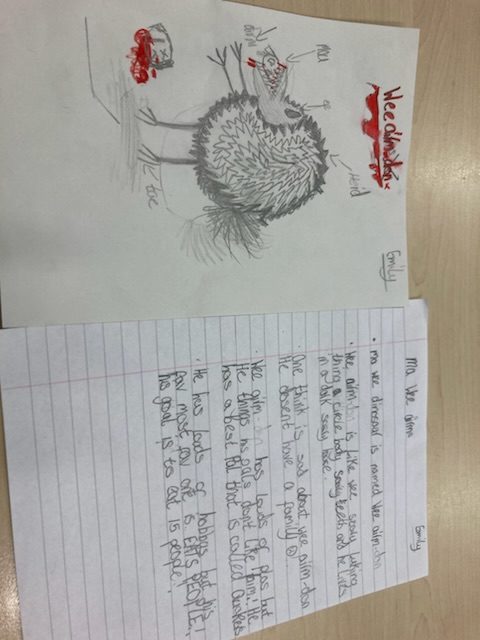 Wee airm-don
Emily
Heid
ee
airm
toe
Emily
Ma Wee
• ma wee dinosaur is named wee airm-don
• Wee airm-don is like wee scary looking
thing a circle body, scary teeth and he lives
in a dark scary
• One think is sad about wee airm-don
He doesent have a family
• Wee airm-don has loads of plas but
He things his pals dont like him. He
has a best Pal that is called
• He has loads of hobbys but his
fav most fav one is EATS PEOPLE,
his goal is to eat 15 people.